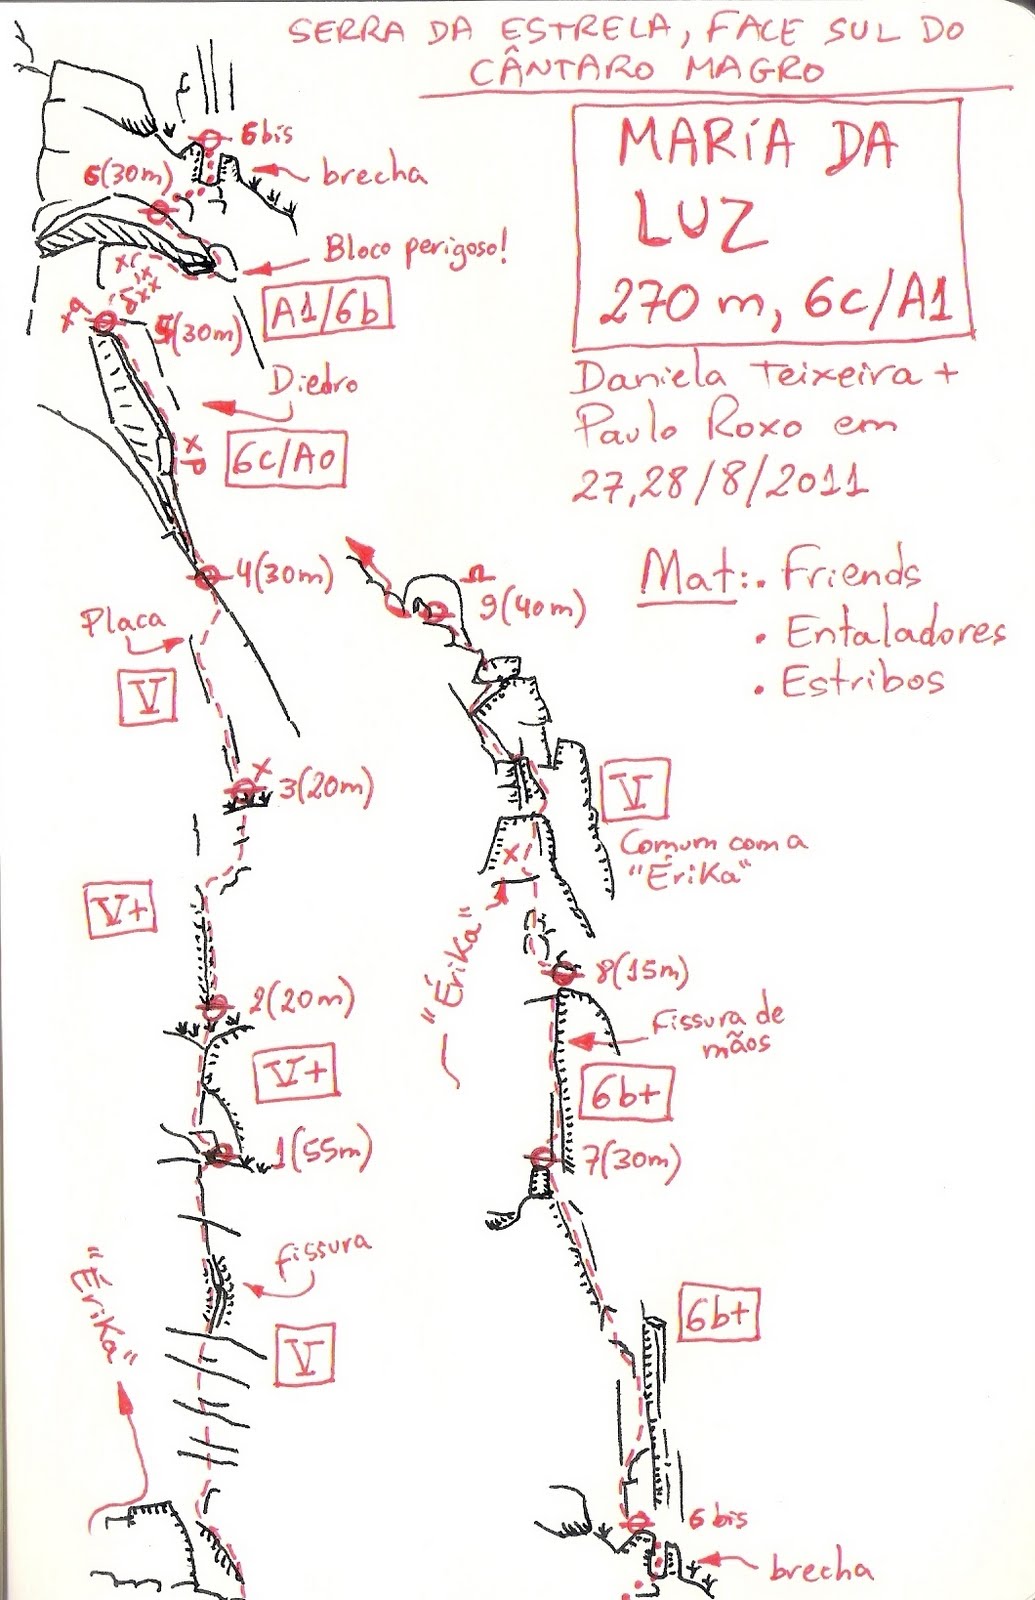 SERRA DA ESTRELA, FACE SUL DO
CÂNTARO MAGRO
MARÍA DA
LUZ
270 m, 6c/A1
Daniela Teixeira +
Paulo Roxo em
27,28/8/2011
Mat:. Friends
. Entaladores
. Estribos
6 bis
brecha
6(30m)
Bloco perigoso!
A1/6b
5(30m)
Diedro
6c/A0
4(30m)
Placa
V
3(20m)
V+
2(20m)
V+
1(55m)
fissura
V
"Érika"
9(40m)
V
Comum com a
"Érika"
"Érika"
8(15m)
Fissura de
mãos
6b+
7(30m)
6b+
6 bis
brecha